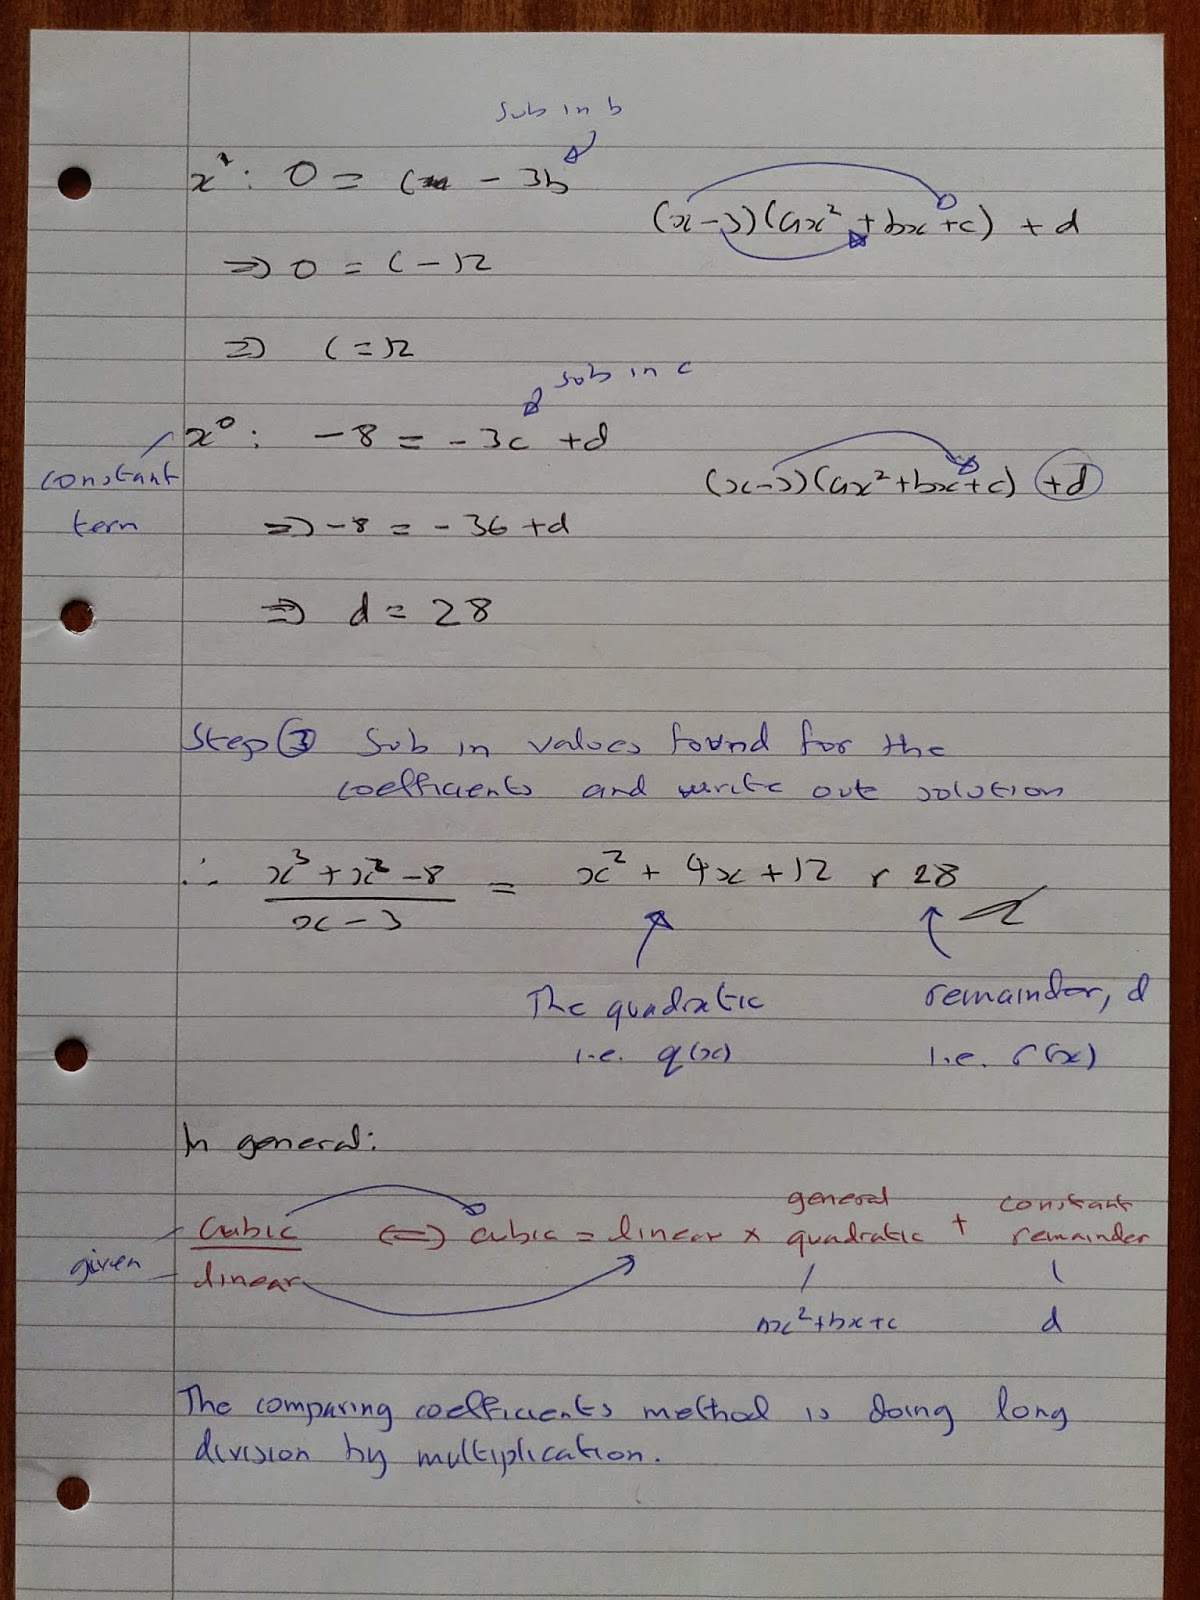 sub in b
x¹: 0 = c - 3b
(x-3)(ax² + bx + c) + d
⇒ 0 = c - 12
⇒ c = 12
sub in c
x⁰: -8 = -3c + d
(x-3)(ax² + bx + c) + d
constant
term
⇒ -8 = -36 + d
⇒ d = 28
Step ③ Sub in values found for the
coefficients and write out solution
∴ x³ + x² - 8 / x - 3 = x² + 4x + 12 r 28
The quadratic
i.e. q(x)
remainder, d
i.e. r(x)
In general:
given
cubic / linear ⇔ cubic = linear × general quadratic + constant remainder
ax² + bx + c
d
The comparing coefficients method is doing long
division by multiplication.